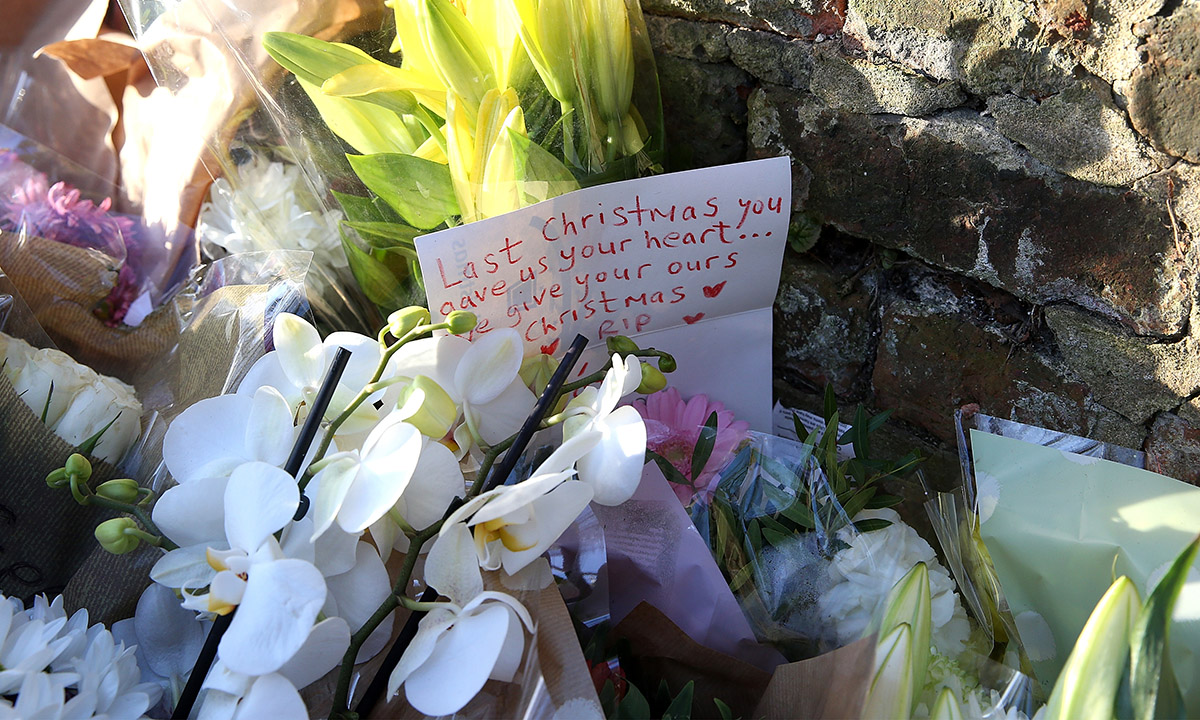 Last Christmas you
gave us your heart...
We give your ours
Christmas
RIP